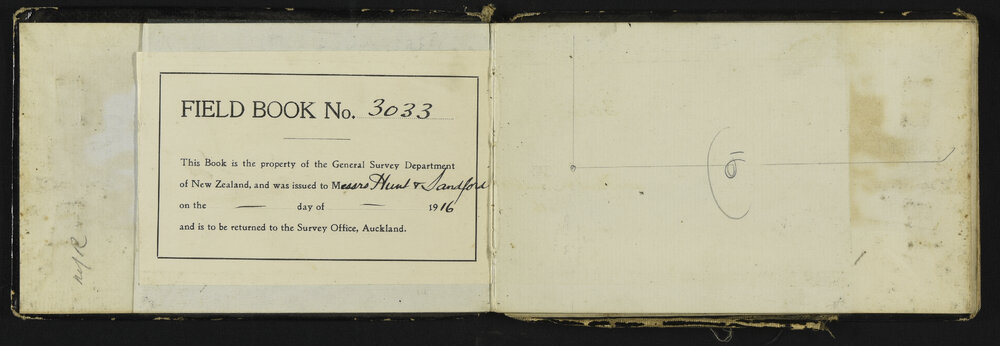 FIELD BOOK No. 3033
This Book is the property of the General Survey Department
of New Zealand, and was issued to Messrs Hunt & Sandford
on the — day of — 1916
and is to be returned to the Survey Office, Auckland.